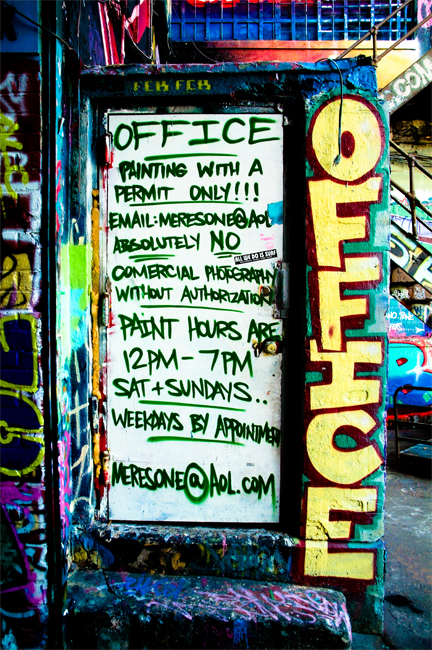 FCK FCK
OFFICE
PAINTING WITH A
PERMIT ONLY!!!
EMAIL:MERESONE@AOL
ABSOLUTELY NO
ALL WE DO IS SURF
COMERCIAL PHOTOGRAPHY
WITHOUT AUTHORIZATION!
PAINT HOURS ARE
12PM - 7PM
SAT + SUNDAYS..
WEEKDAYS BY APPOINTMENT
MERESONE@AOL.COM
OFFICE
.COM